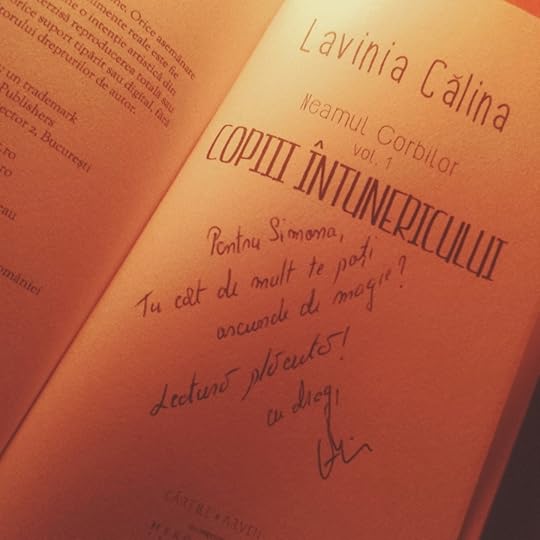 mente reale este fie
Orice asemănare
e o intenție artistică din
terzisă reproducerea totală sau
orice suport tipărit sau digital, fără
torului drepturilor de autor.
un trademark
Publishers
ector 2, București
.ro
.ro
eau
omâniei
Lavinia Călina
Neamul Corbilor
vol. 1
COPIII ÎNTUNERICULUI
Pentru Simona,
Tu cât de mult te poți
ascunde de magie?
Lectură plăcută!
cu drag,
CĂRȚILE ARVEN